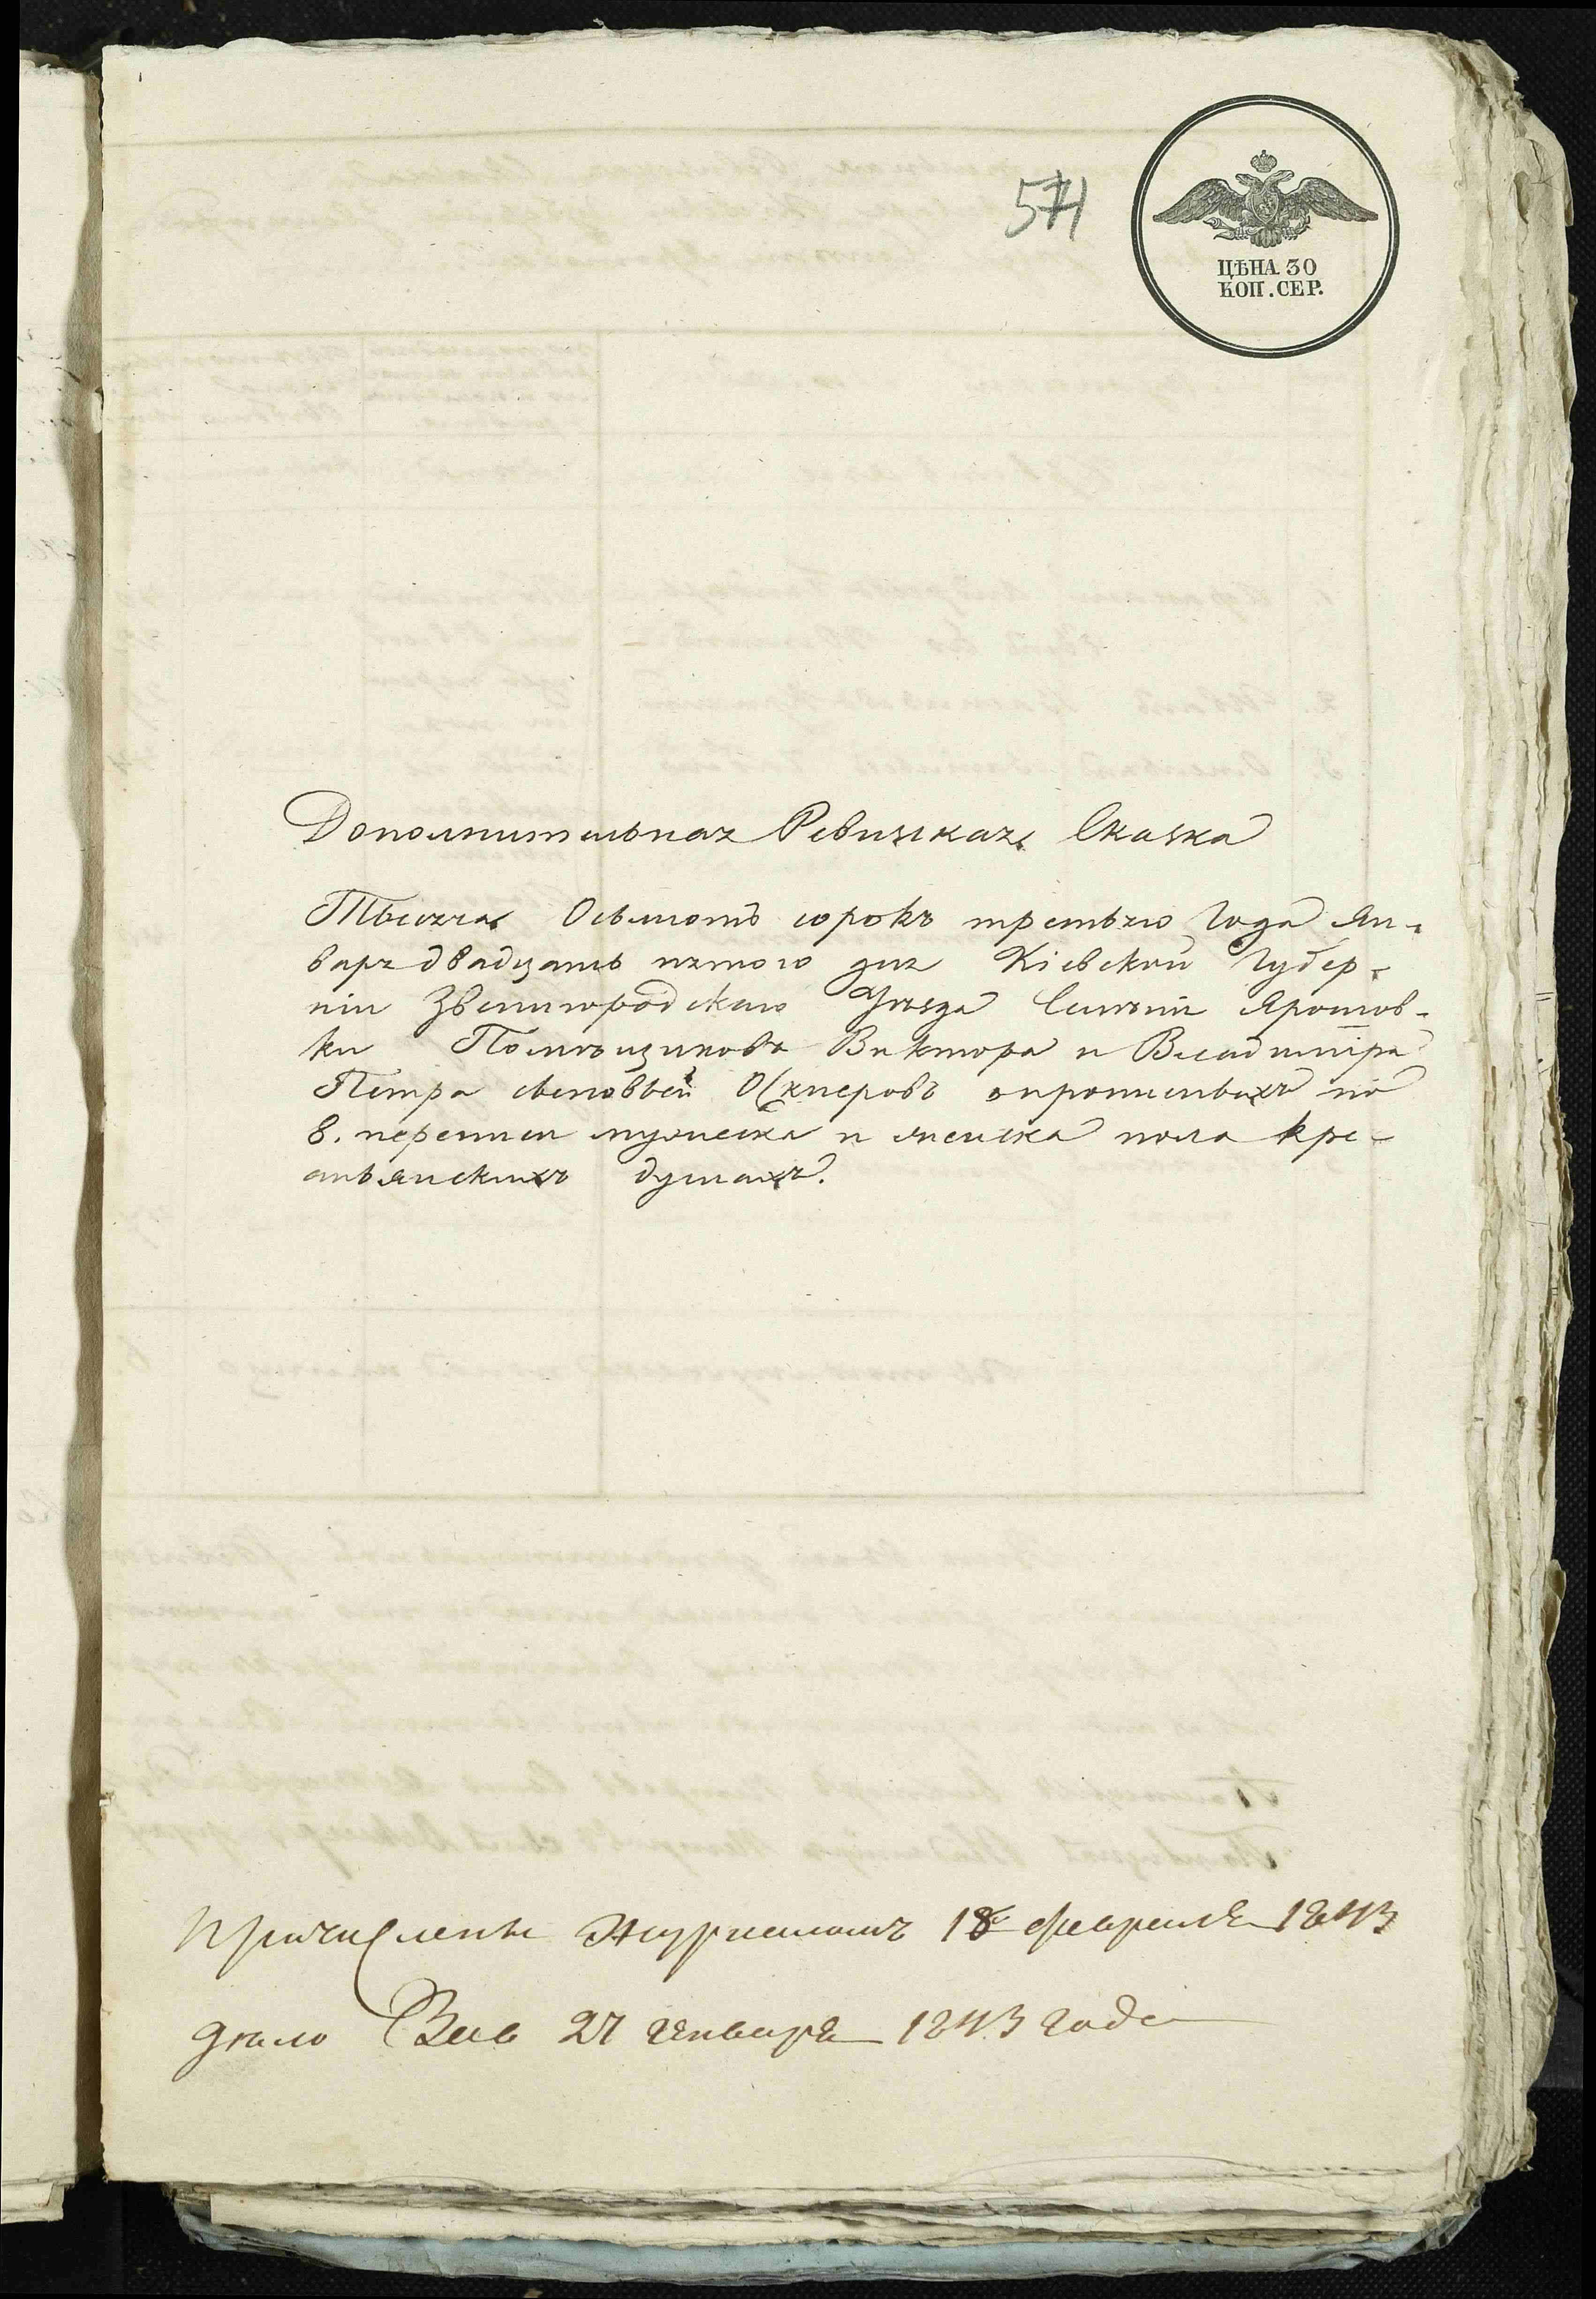 571
ЦѢНА 30
КОП. СЕР.
Дополнительная Ревизская Сказка
Тысяча Осьмсотъ сорокъ третьяго Года Ян-
варя двадцать пятого дня Кіевской Губер-
ніи Звенигородскаго Уѣзда Селенія Ярошов-
ки Помѣщиковъ Виктора и Владиміра
Петра сыновьей опрописныхъ по
8. переписи мужеска и женска пола кре-
стьянскихъ душахъ.
Причислены Журналомъ 18 февраля 1843
дѣло 27 Января 1843 года